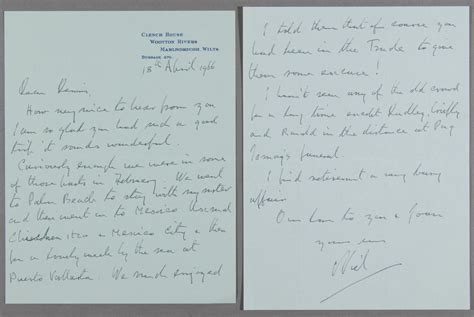 CLENCH HOUSE
WOOTTON RIVERS
MARLBOROUGH, WILTS.
18th April 1966
How very nice to hear from you
I am so glad you had such a good
trip it sounds wonderful.
Curiously enough we were in some
of those parts in February. We went
to Palm Beach to stay with my sister
and then went on to Mexico
Chichen Itza Mexico City & then
for a lovely week by the sea at
Puerto Vallarta. We much enjoyed
I told them that of course you
had been in the Trade to give
them some excuse!
I haven't seen any of the old crowd
for a long time except Dudley, briefly,
and Ronald in the distance at Pug
Ismay's funeral.
I find retirement a very busy
affair
Our love to you &
yours ever